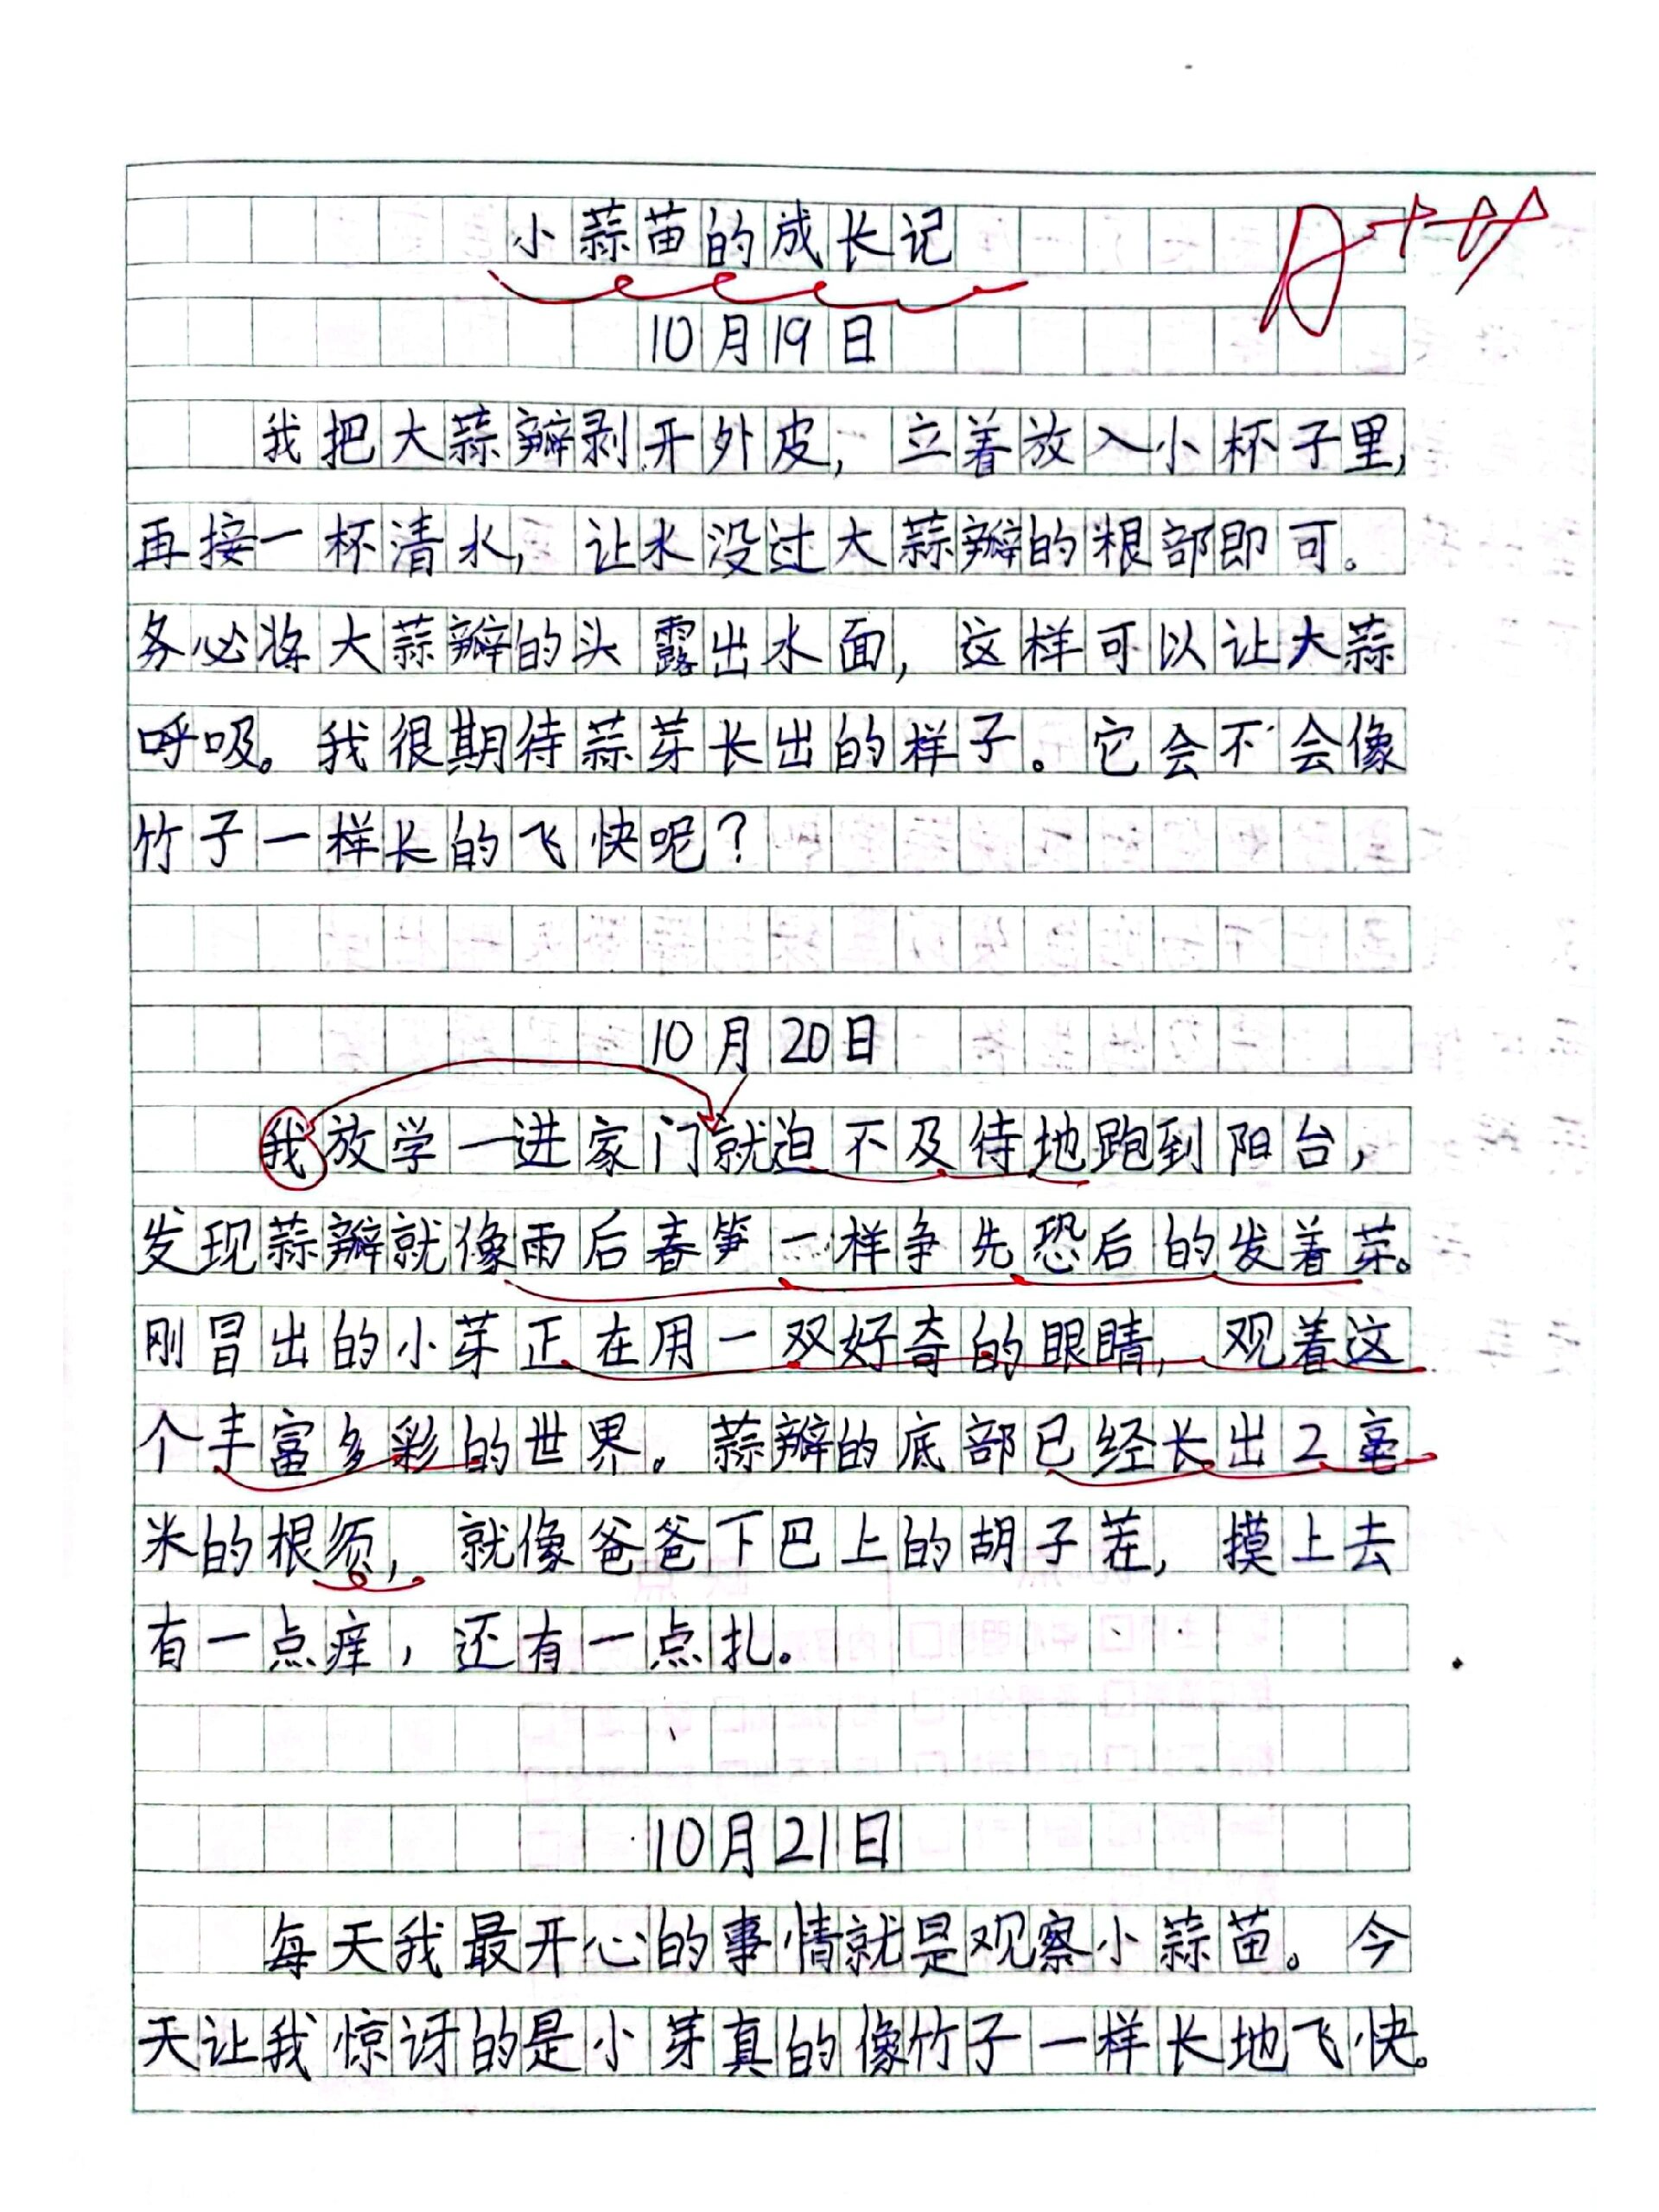 小蒜苗的成长记
A+++
10月19日
我把大蒜瓣剥开外皮，立着放入小杯子里，
再接一杯清水，让水没过大蒜瓣的根部即可。
务必将大蒜瓣的头露出水面，这样可以让大蒜
呼吸。我很期待蒜芽长出的样子。它会不会像
竹子一样长的飞快呢？
10月20日
我放学一进家门就迫不及待地跑到阳台，
发现蒜瓣就像雨后春笋一样争先恐后的发着芽。
刚冒出的小芽正在用一双好奇的眼睛，观着这
个丰富多彩的世界。蒜瓣的底部已经长出2毫
米的根须，就像爸爸下巴上的胡子茬，摸上去
有一点痒，还有一点扎。
10月21日
每天我最开心的事情就是观察小蒜苗。今
天让我惊讶的是小芽真的像竹子一样长地飞快。